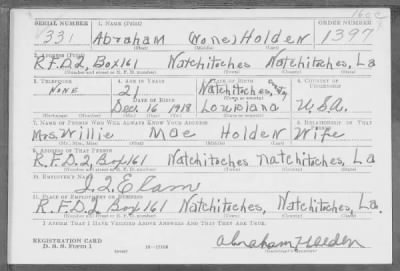 SERIAL NUMBER 1. NAME (Print) ORDER NUMBER
331 Abraham (None) Holden 1397
(First) (Middle) (Last)
2. ADDRESS (Print)
R.F.D.2, Box 161 Natchitoches Natchitoches, La
(Number and street or R. F. D. number) (Town) (County) (State)
3. TELEPHONE 4. AGE IN YEARS 5. PLACE OF BIRTH 6. COUNTRY OF CITIZENSHIP
NONE 21 Natchitoches,
DATE OF BIRTH (Town or county)
Dec. 1918 Louisiana U.S.A.
(Exchange) (Number) (Mo.) (Day) (Yr.) (State or country)
7. NAME OF PERSON WHO WILL ALWAYS KNOW YOUR ADDRESS 8. RELATIONSHIP OF THAT PERSON
Mrs. Willie Mae Holden Wife
(Mr., Mrs., Miss) (First) (Middle) (Last)
9. ADDRESS OF THAT PERSON
R.F.D.2 Box 161 Natchitoches Natchitoches, La
(Number and street or R. F. D. number) (Town) (County) (State)
10. EMPLOYER'S NAME
Elam
11. PLACE OF EMPLOYMENT OR BUSINESS
R.F.D.2 Box 161 Natchitoches, Natchitoches, La.
(Number and street or R. F. D. number) (Town) (County) (State)
I AFFIRM THAT I HAVE VERIFIED ABOVE ANSWERS AND THAT THEY ARE TRUE.
REGISTRATION CARD
D. S. S. Form 1 (over) 16—17105
Abraham Holden